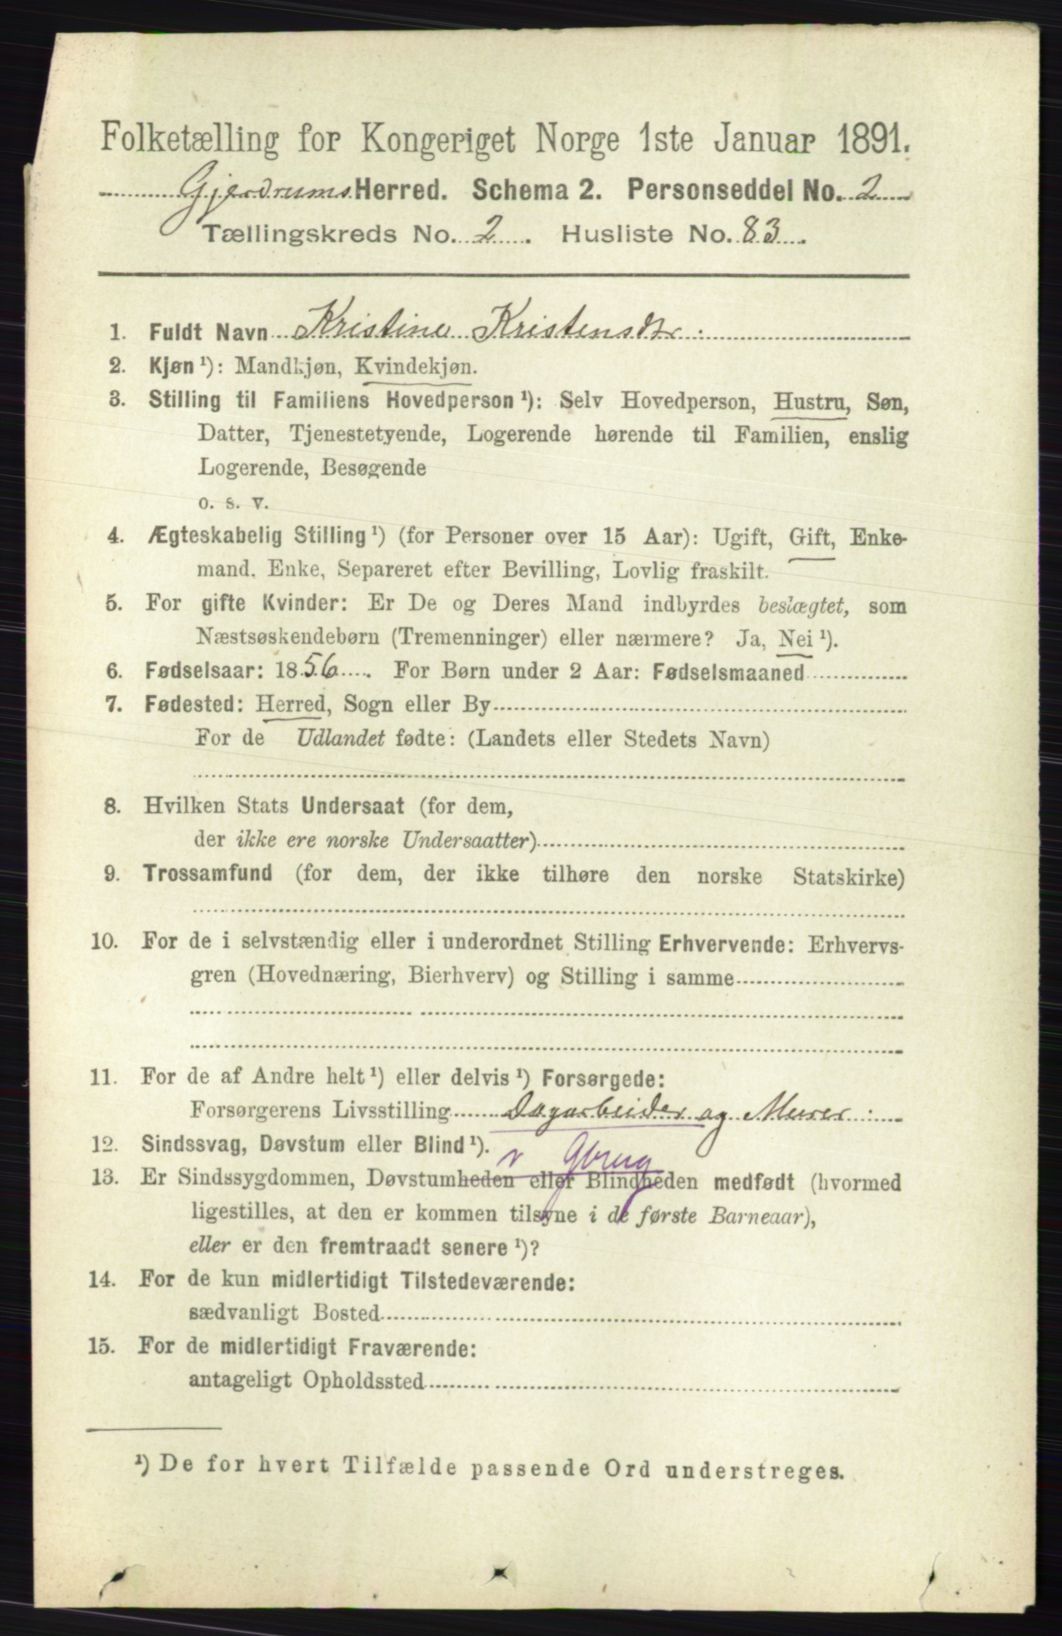 Folketælling for Kongeriget Norge 1ste Januar 1891.
Gjerdrums Herred. Schema 2. Personseddel No. 2
Tællingskreds No. 2. Husliste No. 83.
1. Fuldt Navn Kristine Kristensdtr.
2. Kjøn ¹): Mandkjøn, Kvindekjøn.
3. Stilling til Familiens Hovedperson ¹): Selv Hovedperson, Hustru, Søn,
Datter, Tjenestetyende, Logerende hørende til Familien, enslig
Logerende, Besøgende
o. s. v.
4. Ægteskabelig Stilling ¹) (for Personer over 15 Aar): Ugift, Gift, Enke-
mand, Enke, Separeret efter Bevilling, Lovlig fraskilt.
5. For gifte Kvinder: Er De og Deres Mand indbyrdes beslægtet, som
Næstsøskendebørn (Tremenninger) eller nærmere? Ja, Nei ¹).
6. Fødselsaar: 1856. For Børn under 2 Aar: Fødselsmaaned
7. Fødested: Herred, Sogn eller By
For de Udlandet fødte: (Landets eller Stedets Navn)
8. Hvilken Stats Undersaat (for dem,
der ikke ere norske Undersaatter)
9. Trossamfund (for dem, der ikke tilhøre den norske Statskirke)
10. For de i selvstændig eller i underordnet Stilling Erhvervende: Erhvervs-
gren (Hovednæring, Bierhverv) og Stilling i samme
11. For de af Andre helt ¹) eller delvis ¹) Forsørgede:
Forsørgerens Livsstilling Dagarbeider og Murer.
12. Sindssvag, Døvstum eller Blind ¹).
v Gbrug
13. Er Sindssygdommen, Døvstumheden eller Blindheden medfødt (hvormed
ligestilles, at den er kommen tilsyne i de første Barneaar),
eller er den fremtraadt senere ¹)?
14. For de kun midlertidigt Tilstedeværende:
sædvanligt Bosted
15. For de midlertidigt Fraværende:
antageligt Opholdssted
¹) De for hvert Tilfælde passende Ord understreges.